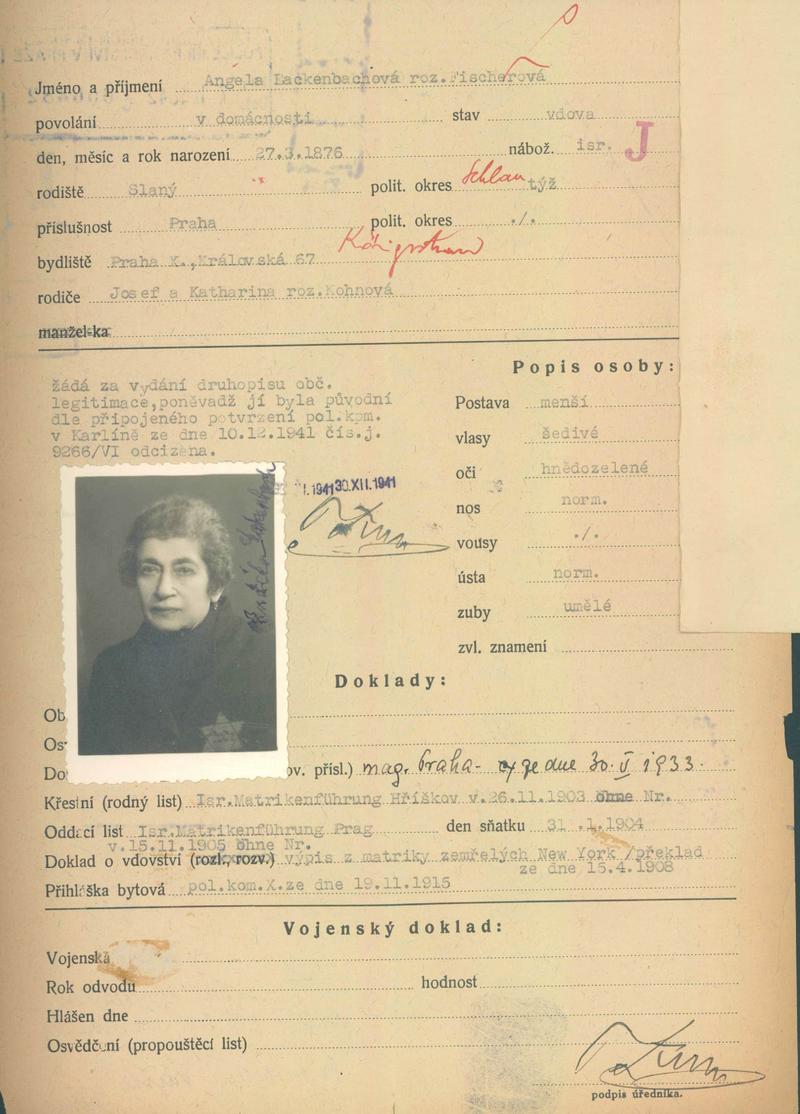 Jméno a příjmení Angela Lackenbachová roz.Fischerová
povolání v domácnosti stav vdova
den, měsíc a rok narození 27.3.1876 nábož. isr. J
rodiště Slaný polit. okres Schlan týž
příslušnost Praha polit. okres ./.
bydliště Praha X.,Královská 67 Königstrasse
rodiče Josef a Katharina roz.Kohnová
manžel-ka
Popis osoby:
žádá za vydání druhopisu obč.
legitimace,poněvadž jí byla původní
dle připojeného potvrzení pol.kom.
v Karlíně ze dne 10.12.1941 čís.j.
9266/VI odcizena.
Postava menší
vlasy šedivé
oči hnědozelené
30.XII.1941
nos norm.
vousy ./.
ústa norm.
zuby umělé
zvl. znamení
Doklady:
Ob
Os
Do ov. přísl.) mag. Praha - ze dne 30. V 1933.
Křestní (rodný list) Isr.Matrikenführung Hříškov v.26.11.1903 ohne Nr.
Oddací list Isr.Matrikenführung Prag den sňatku 31.1.1904
v.15.11.1905 ohne Nr.
Doklad o vdovství (rozl. rozv.) výpis z matriky zemřelých New York /překlad
ze dne 15.4.1908
Přihláška bytová pol.kom.X.ze dne 19.11.1915
Vojenský doklad:
Vojenská
Rok odvodu hodnost
Hlášen dne
Osvědčení (propouštěcí list)
podpis úředníka.